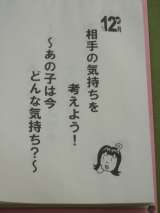 12月
相手の気持ちを
考えよう！
～あの子は今
どんな気持ち？～